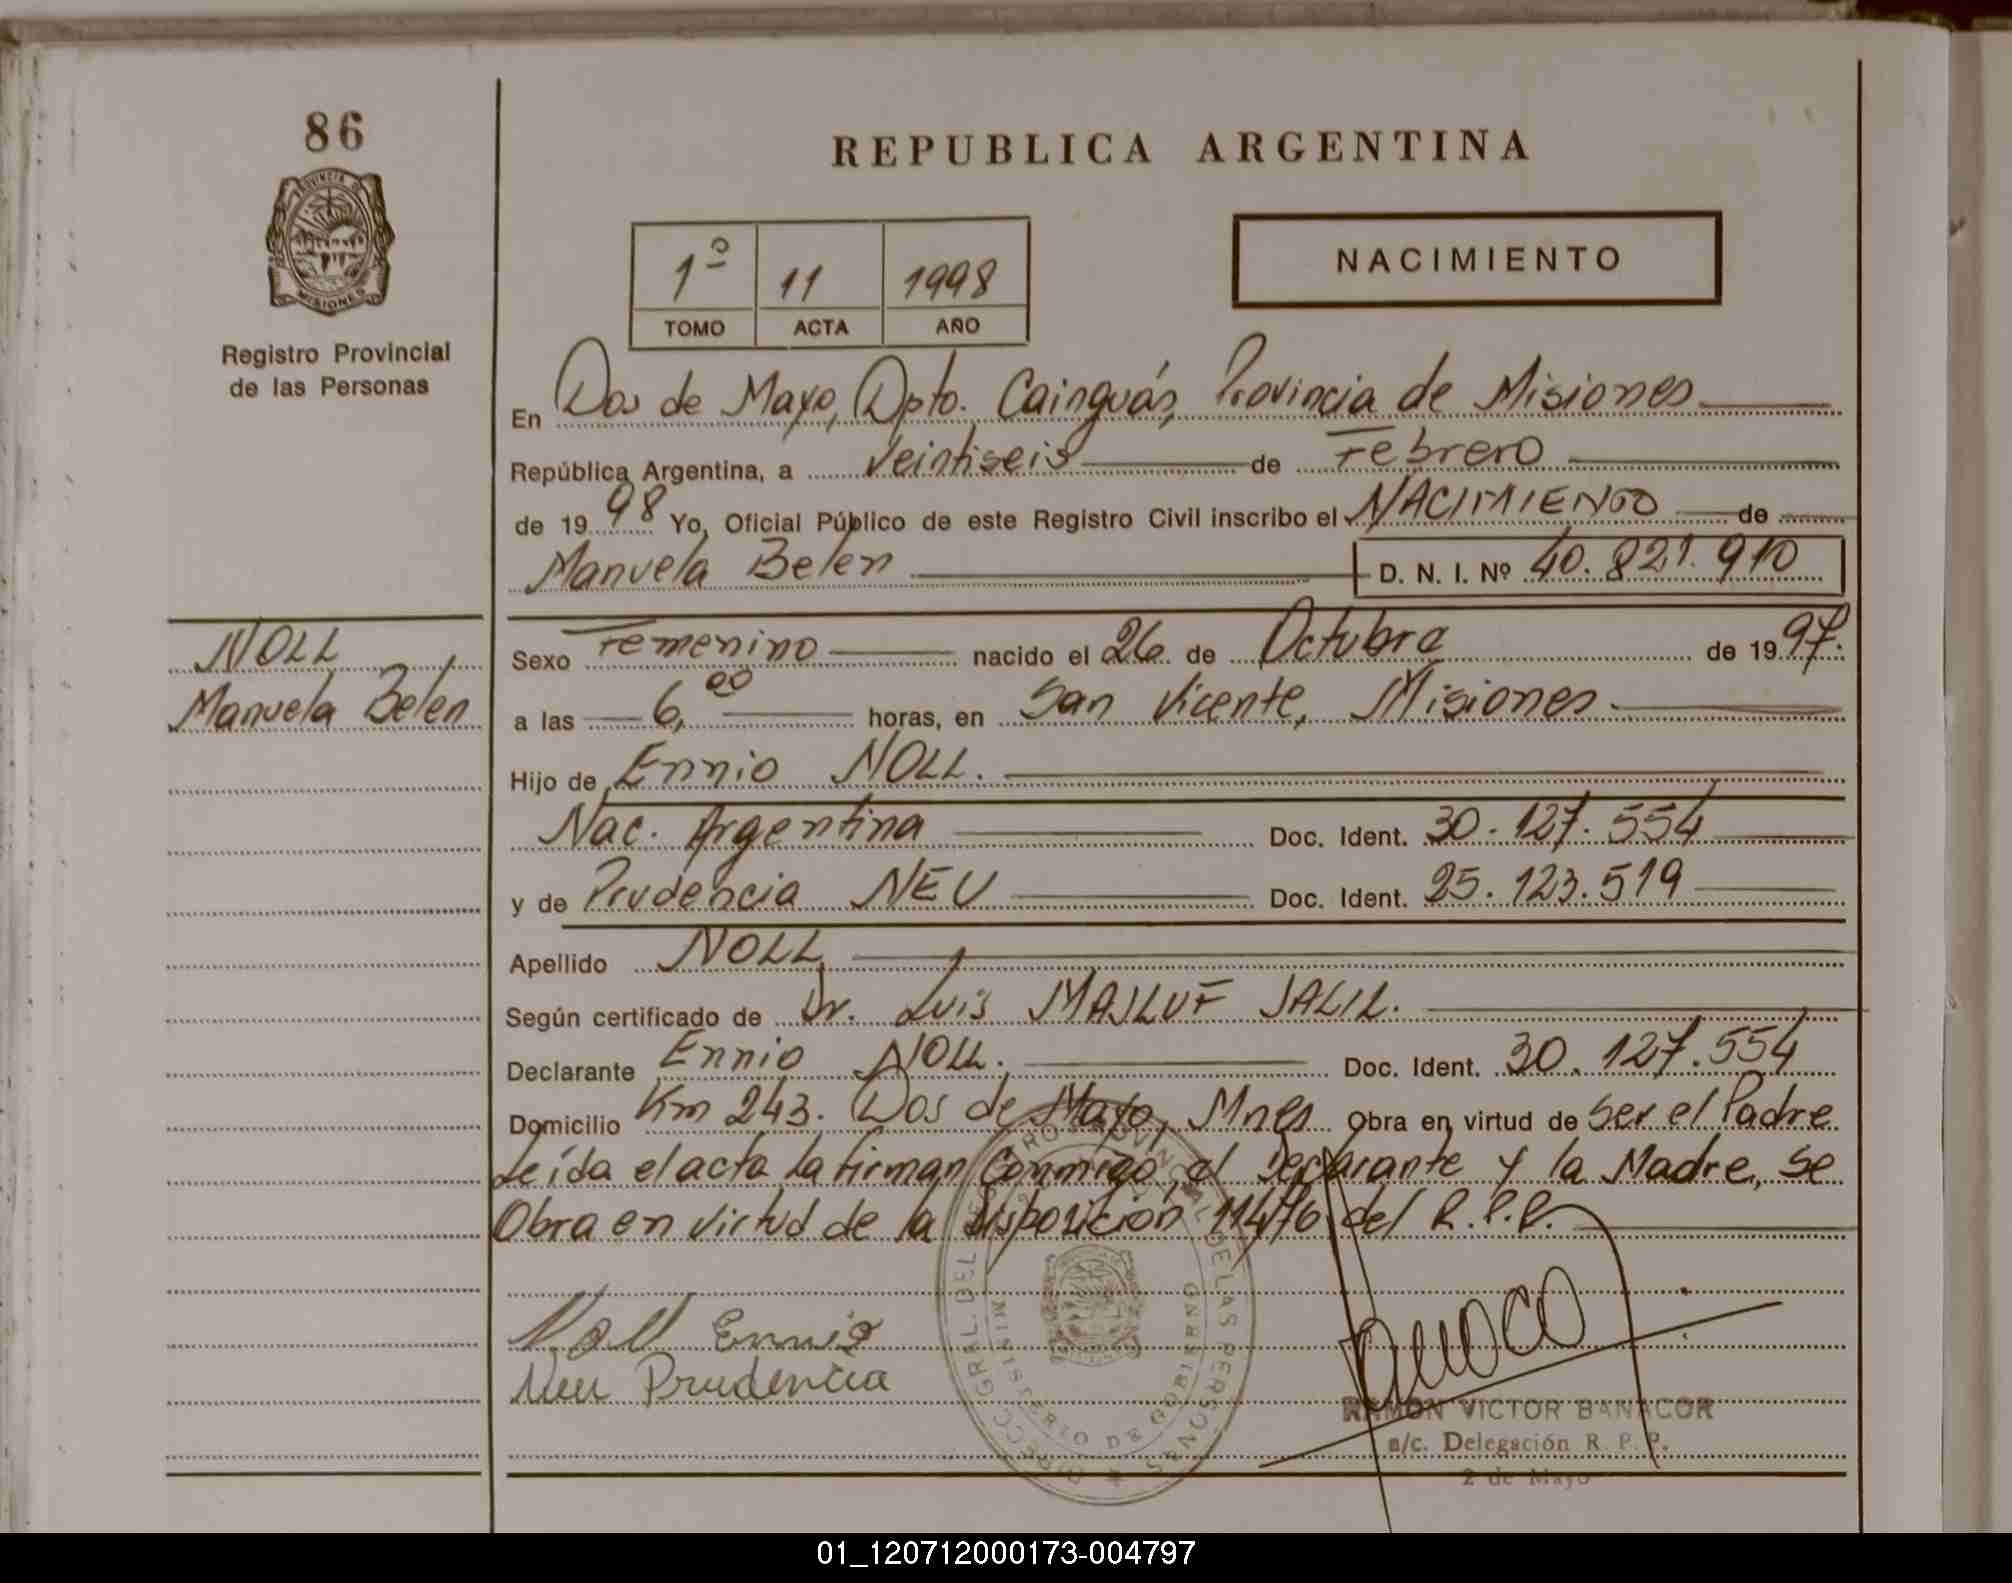 86
PROVINCIA DE
MISIONES
Registro Provincial
de las Personas
NOLL
Manuela Belen
REPUBLICA ARGENTINA
1º 11 1998
TOMO ACTA AÑO
NACIMIENTO
En Dos de Mayo, Dpto. Cainguás, Provincia de Misiones
República Argentina, a Veintiseis de Febrero
de 1998 Yo, Oficial Público de este Registro Civil inscribo el NACIMIENTO de
Manuela Belen D. N. I. Nº 40.821.910
Sexo Femenino nacido el 26 de Octubre de 1997.
a las 6,00 horas, en San Vicente, Misiones.
Hijo de Ennio NOLL.
Nac. Argentina Doc. Ident. 30.127.554
y de Prudencia NEU Doc. Ident. 25.123.519
Apellido NOLL
Según certificado de Dr. Luis MAJLUF JALIL.
Declarante Ennio NOLL. Doc. Ident. 30.127.554
Domicilio Km 243. Dos de Mayo, Mnes Obra en virtud de Ser el Padre
Leída el acta la firman Conmigo, el Declarante y la Madre, se
Obra en virtud de la Disposicion 114/76 del R.P.P.
Noll Ennio
Neu Prudencia
MINISTERIO DE GOBIERNO
RAMON VICTOR BANACOR
a/c. Delegación R. P. P.
2 de Mayo
01_120712000173-004797